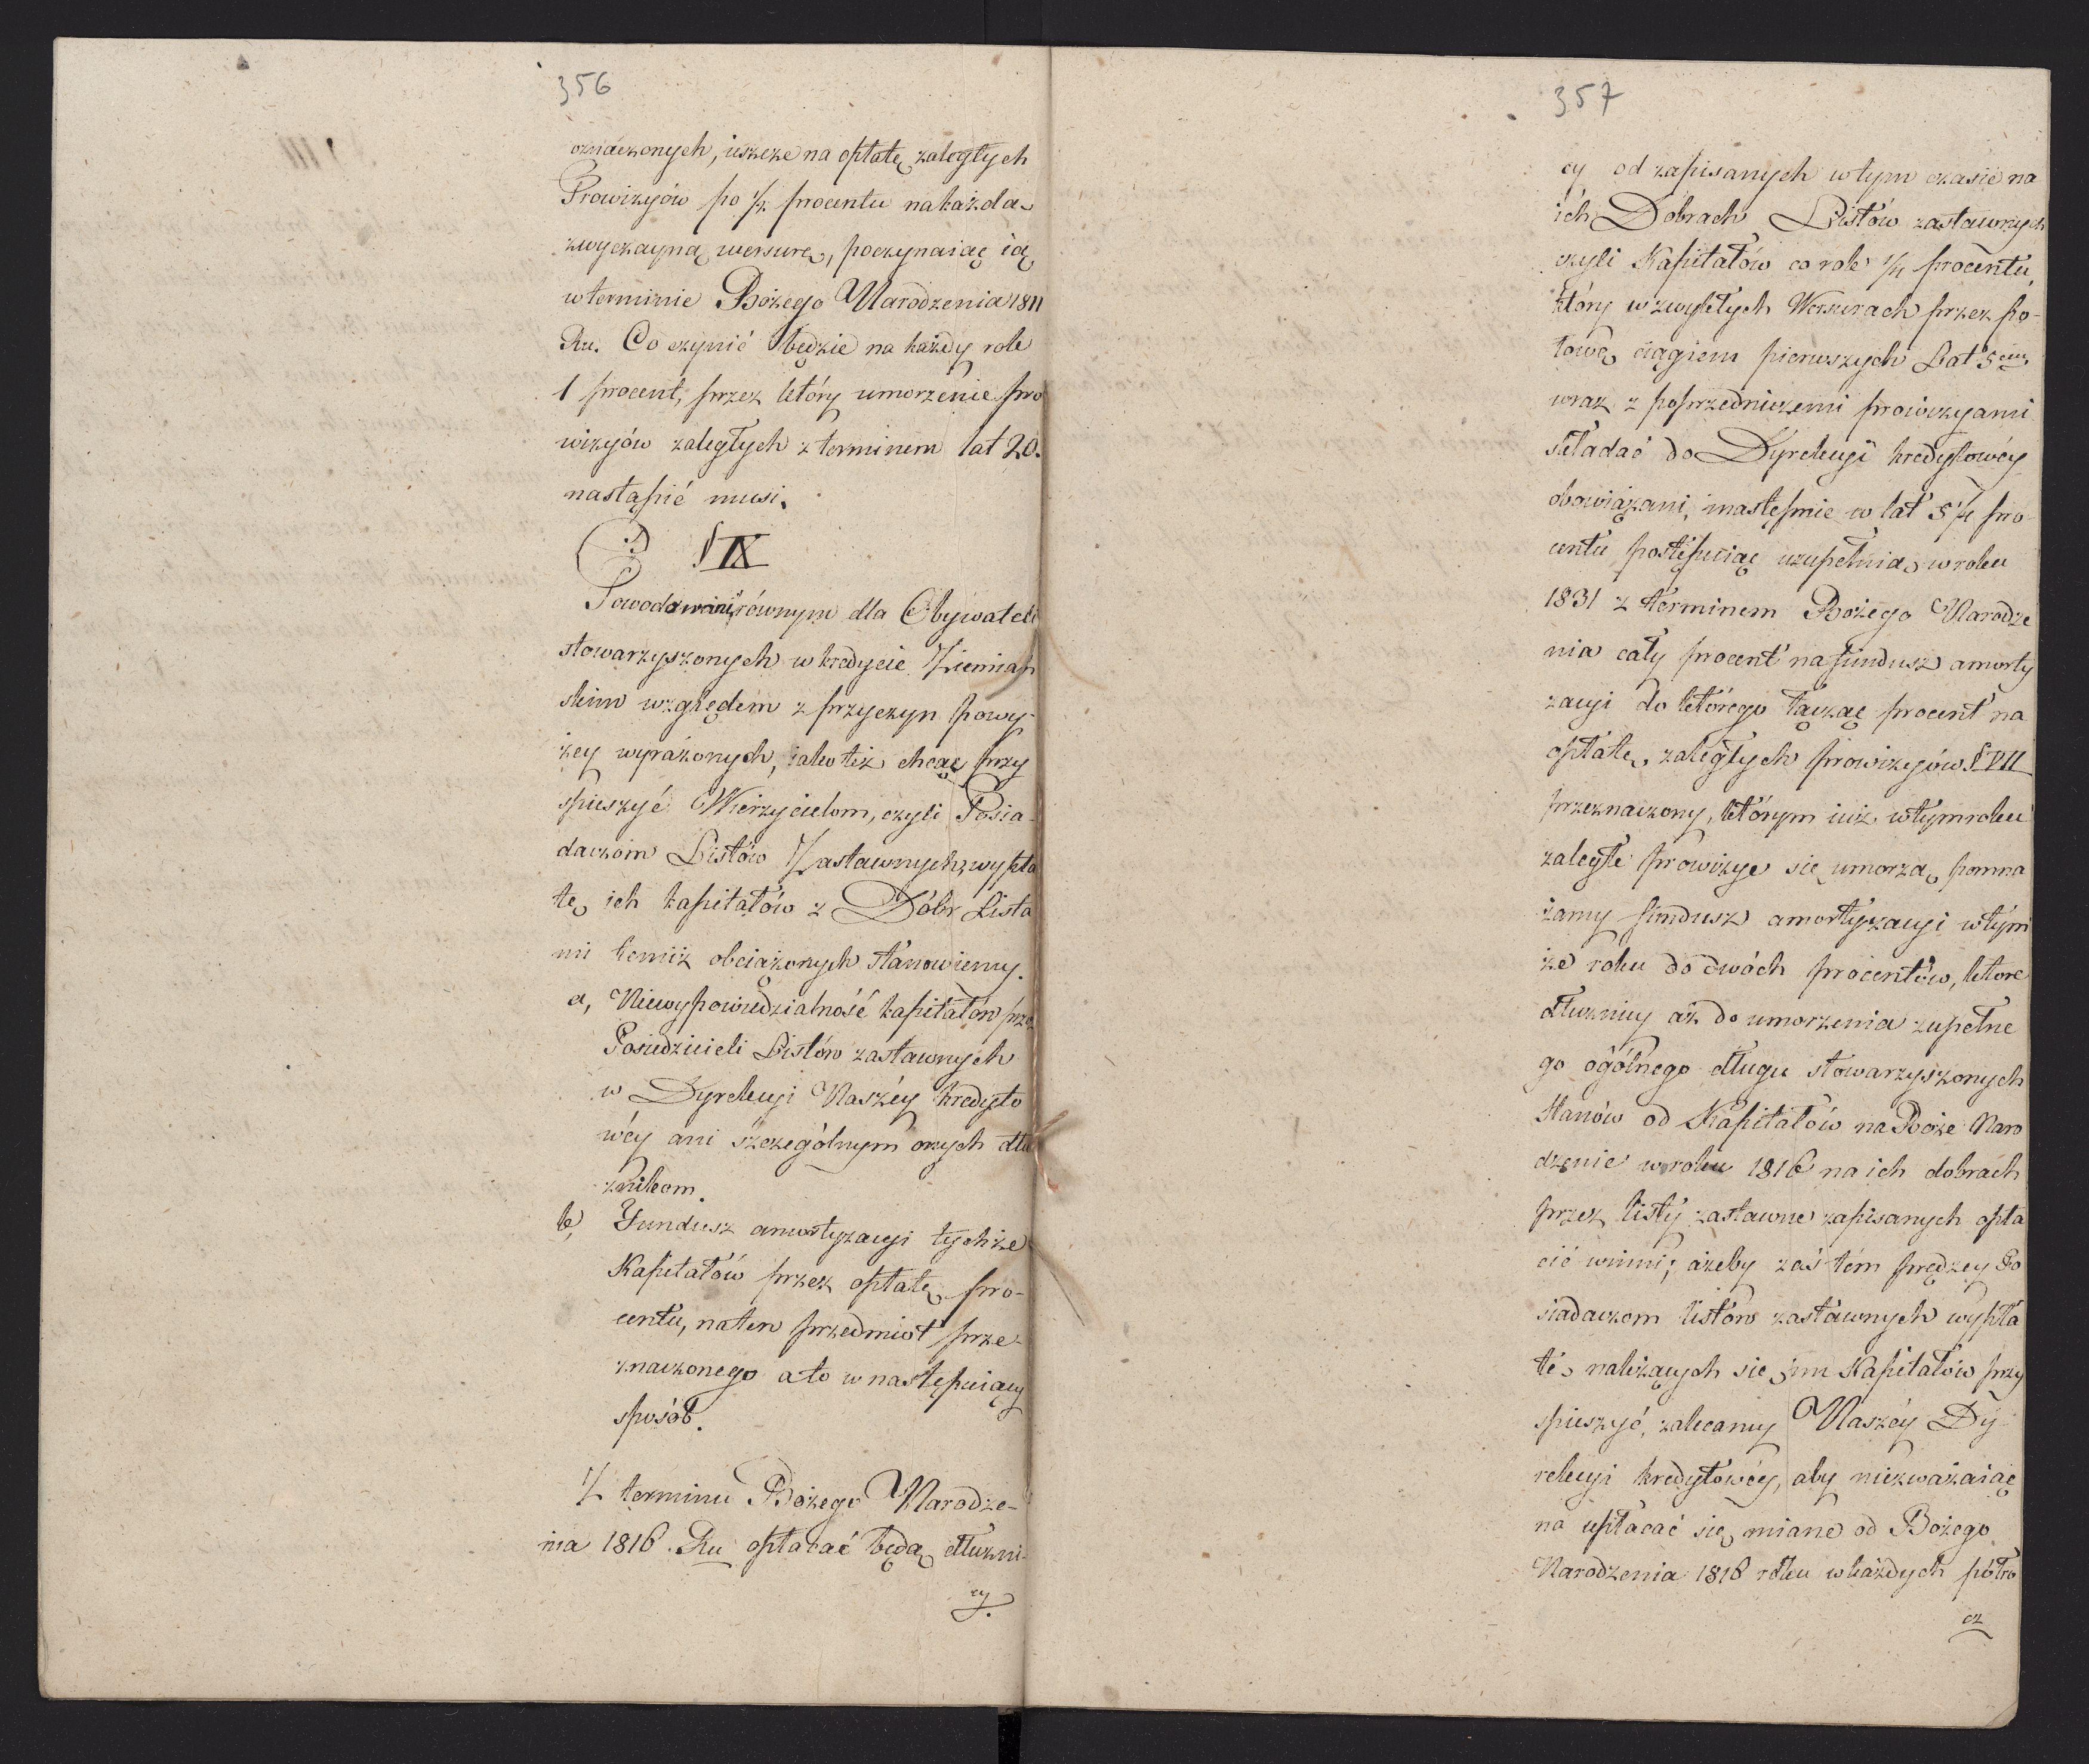 356
oznaczonych, ieszcze na opłatę zaległych
Prowizyów po ½ procentu na każdą
zwyczayną wersurę, poczynaiąc ią
w terminie Bożego Narodzenia 1811
Ru. Co czynić będzie na każdy rok
1 procent, przez który umorzenie pro
wizyów zaległych z terminem lat 20.
nastąpić musi.
§ IX
Powodowani równym dla Obywateli
stowarzyszonych w kredycie Ziemiań
skim względem z przyczyn powy-
żey wyrażonych, iako też chcąc przy
spieszyć Wierzycielom, czyli Posia-
daczom Listów Zastawnych, wypła
tę ich kapitałów z Dóbr Lista
mi temiż obciążonych stanowiemy.
a, Niewypowiedzialność kapitałów przez
Posiedzicieli Listów zastawnych
w Dyrekcyi Naszéy kredyto
wéy ani szczególnym onych dłu
żnikom.
b, Fundusz amortyzacyi tychże
Kapitałów przez opłatę pro-
centu, na ten przedmiot prze-
znaczonego a to w następuiący
sposób.
Z terminu Bożego Narodze-
nia 1816. Ru opłacać będą dłużni-
cy.
357
cy od zapisanych w tym czasie na
ich Dobrach Listów zastawnych
czyli Kapitałów co rok ¼ procentu,
który w zwykłych Wersurach przez po-
łowę ciągiem pierwszych Lat 5ciu
wraz z poprzedniczemi prowizyami
składać do Dyrekcyi kredytowéy
obowiązani, następnie w lat 5 ¼ pro
centu postępuiąc uzupełnią w roku
1831 z terminem Bożego Narodze
nia cały procent na fundusz amorty
zacyi do którego łącząc procent na
opłatę zaległych prowizyów § VII
przeznaczony, którym iuż w tym roku
zaległe prowizye się umorzą, pomna
żamy fundusz amortyzacyi w tym
że roku do dwóch procentów, które
dłużnicy aż do umorzenia zupełne
go ogólnego długu stowarzyszonych
Stanów od Kapitałów na Boże Naro
dzenie w roku 1816 na ich dobrach
przez listy zastawne zapisanych opła
cić winni; ażeby zaś tém prędzey Po
siadaczom listów zastawnych wypła
tę należących się im Kapitałów przy
spieszyć, zalecamy Naszéy Dy
rekcyi kredytowéy, aby niezważaiąc
na upłacać się miane od Bożego
Narodzenia 1816 roku w każdych półro
cz